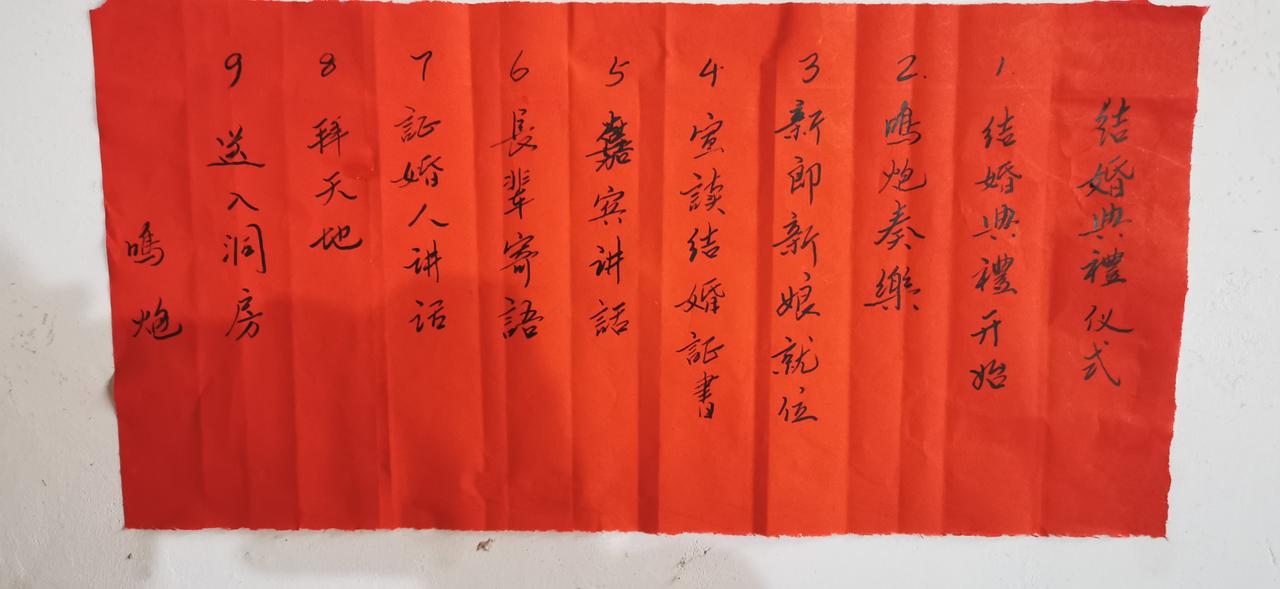 結婚典禮仪式
1. 结婚典禮开始
2. 鳴炮奏樂
3 新郎新娘就位
4 宣談结婚証書
5 嘉宾讲話
6 長辈寄語
7 証婚人讲话
8 拜天地
9 送入洞房
鳴炮